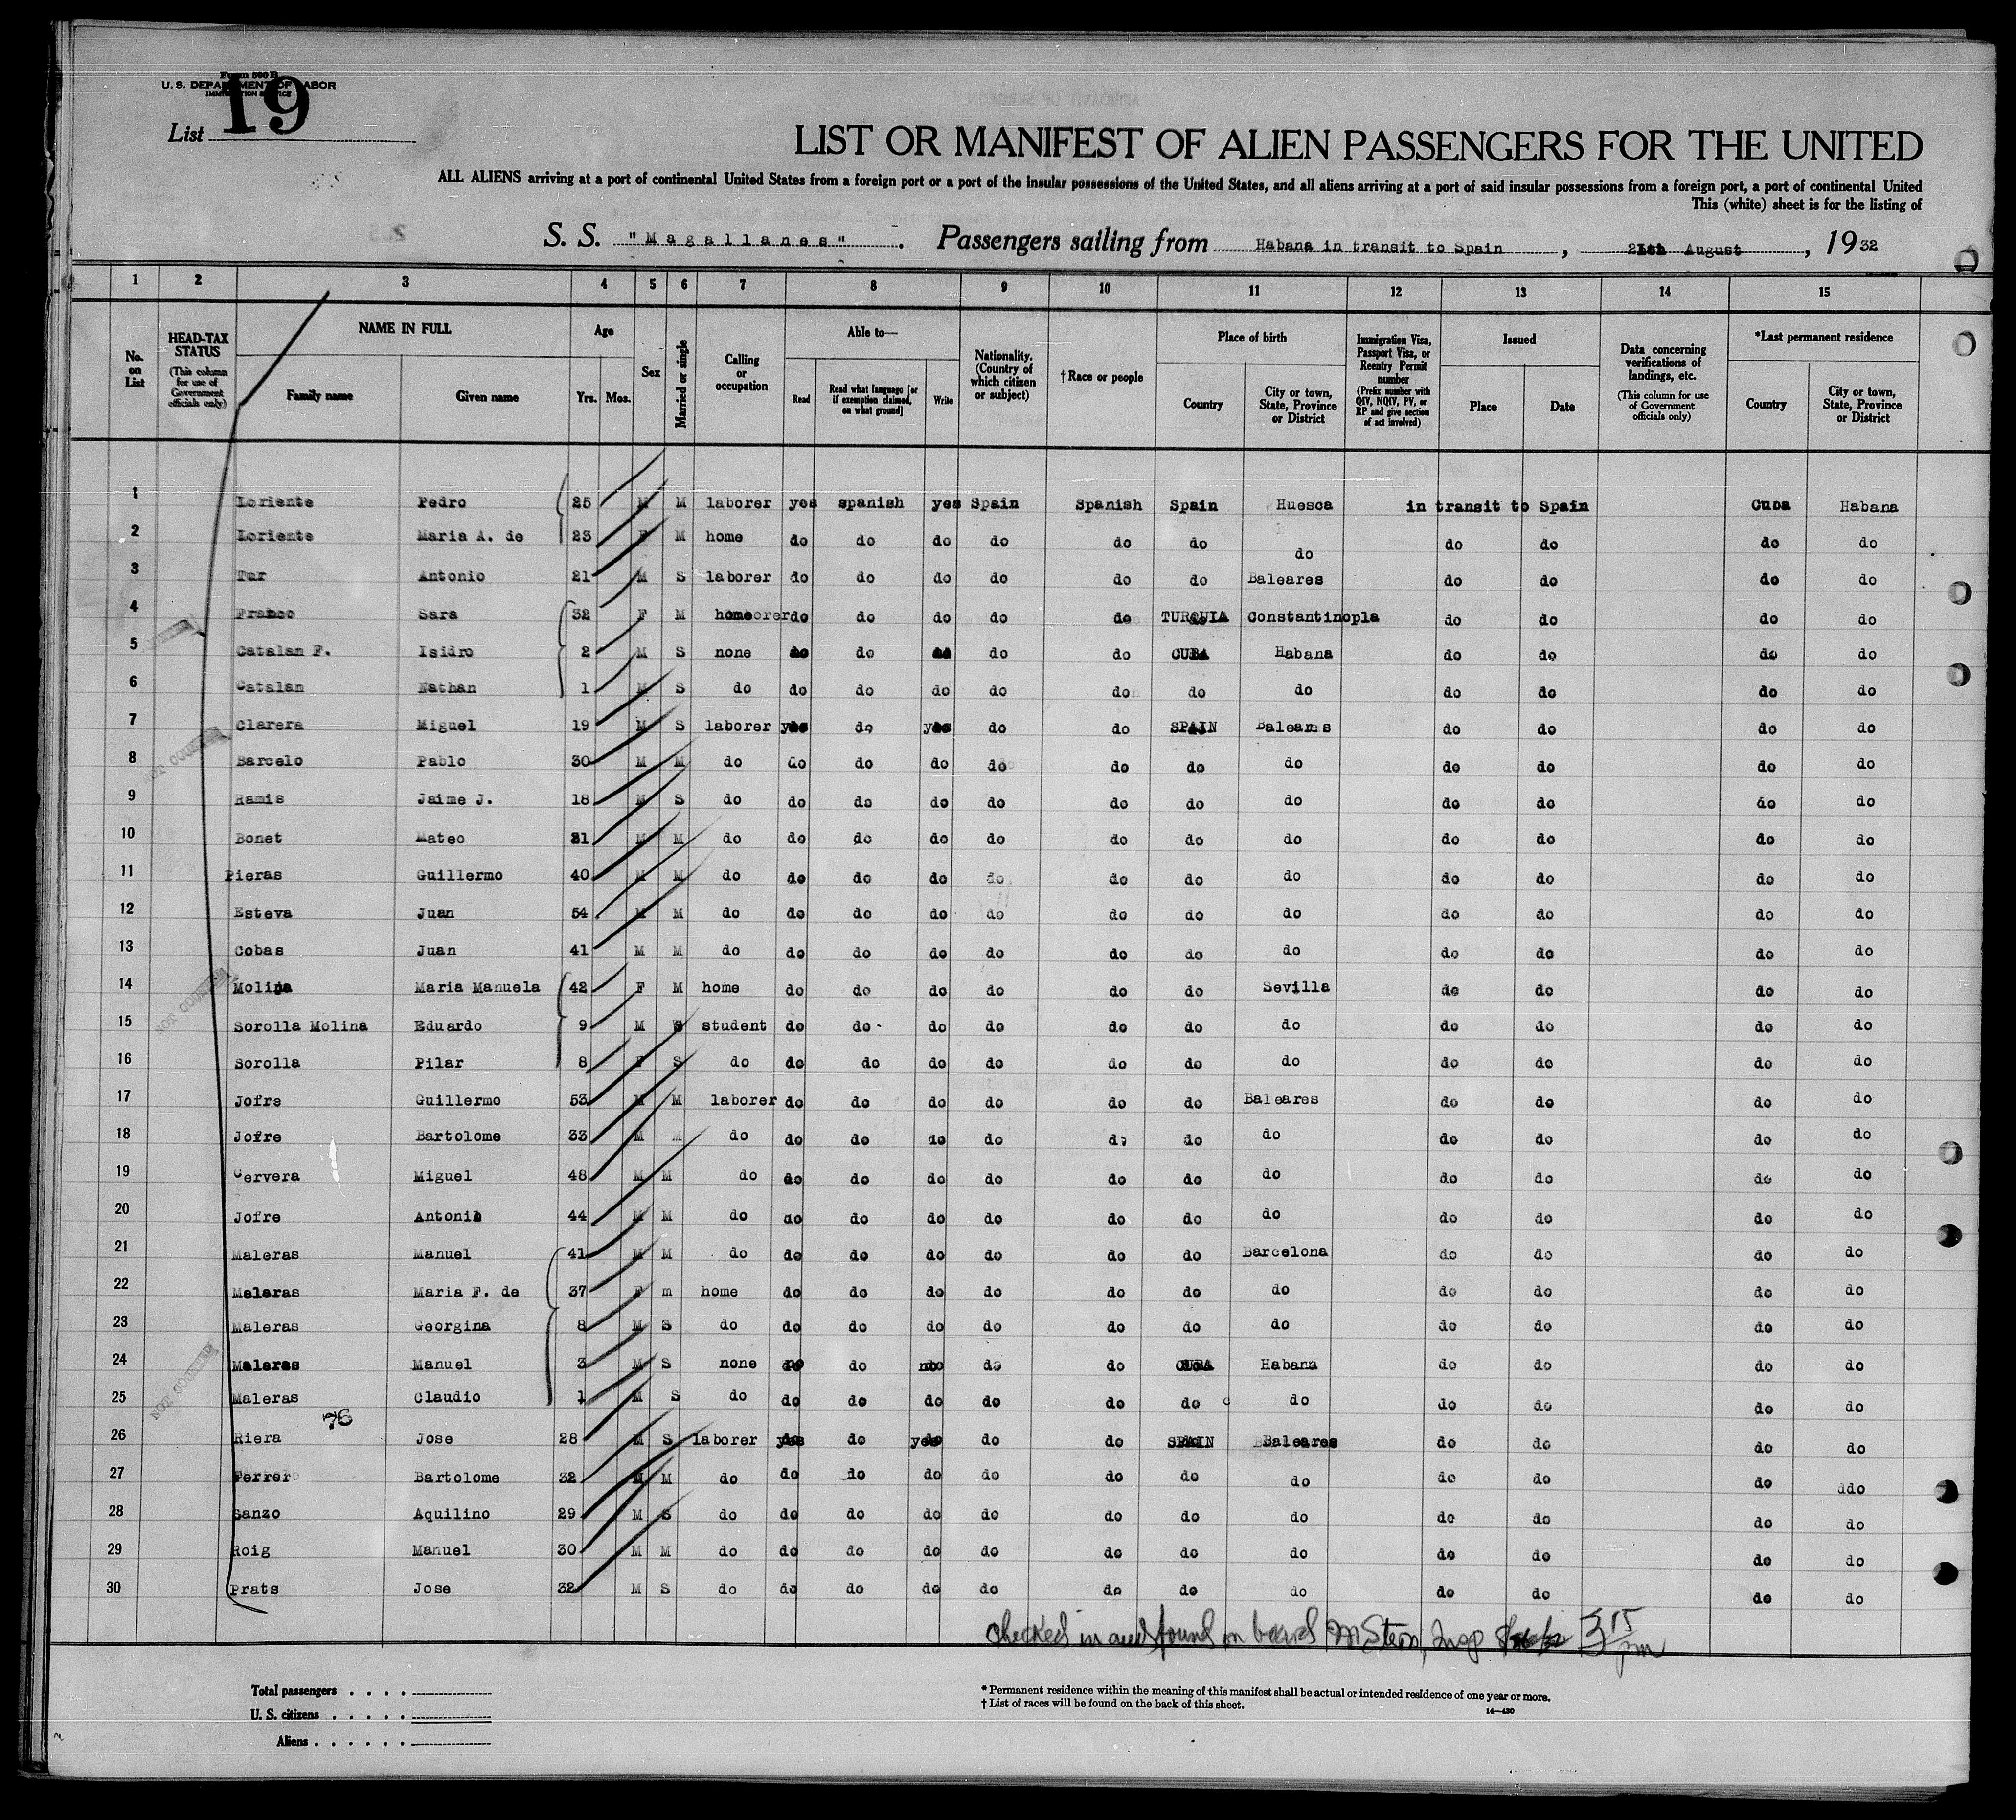 Form 500 B
U. S. DEPARTMENT OF LABOR
IMMIGRATION SERVICE
List 19
LIST OR MANIFEST OF ALIEN PASSENGERS FOR THE UNITED
ALL ALIENS arriving at a port of continental United States from a foreign port or a port of the insular possessions of the United States, and all aliens arriving at a port of said insular possessions from a foreign port, a port of continental United
This (white) sheet is for the listing of
S. S. "Magallanes". Passengers sailing from Habana in transit to Spain, 21st August, 1932
1 2 3 4 5 6 7 8 9 10 11 12 13 14 15
No. on List
HEAD-TAX STATUS (This column for use of Government officials only)
NAME IN FULL Family name Given name
Age Yrs. Mos.
Sex
Married or single
Calling or occupation
Able to— Read Read what language [or if exemption claimed, on what ground] Write
Nationality. (Country of which citizen or subject)
†Race or people
Place of birth Country City or town, State, Province or District
Immigration Visa, Passport Visa, or Reentry Permit number (Prefix number with QIV, NQIV, PV, or RP and give section of act involved)
Issued Place Date
Data concerning verifications of landings, etc. (This column for use of Government officials only)
*Last permanent residence Country City or town, State, Province or District
1 Loriente Pedro 25 M M laborer yes spanish yes Spain Spanish Spain Huesca in transit to Spain Cuba Habana
2 Loriente Maria A. de 23 F M home do do do do do do do do do do do
3 Tur Antonio 21 M S laborer do do do do do do Baleares do do do do
4 Franco Sara 32 F M home do do do do do TURQUIA Constantinopla do do do do
5 Catalan F. Isidro 2 M S none do do do do CUBA Habana do do do do
6 Catalan Nathan 1 M S do do do do do do do do do do do do
7 Clarera Miguel 19 M S laborer yes do yes do do SPAIN Baleares do do do do
8 Barcelo Pablo 30 M M do do do do do do do do do do do do
9 Ramis Jaime J. 18 M S do do do do do do do do do do do do
10 Bonet Mateo 21 M M do do do do do do do do do do do do
11 Pieras Guillermo 40 M M do do do do do do do do do do do do
12 Esteva Juan 54 M M do do do do do do do do do do do do
13 Cobas Juan 41 M M do do do do do do do do do do do do
14 Molina Maria Manuela 42 F M home do do do do do do Sevilla do do do do
15 Sorolla Molina Eduardo 9 M S student do do do do do do do do do do do
16 Sorolla Pilar 8 F S do do do do do do do do do do do do
17 Jofre Guillermo 53 M M laborer do do do do do do Baleares do do do do
18 Jofre Bartolome 33 M M do do do do do do do do do do do do
19 Cervera Miguel 48 M M do do do do do do do do do do do do
20 Jofre Antonio 44 M M do do do do do do do do do do do do
21 Maleras Manuel 41 M M do do do do do do do Barcelona do do do do
22 Maleras Maria F. de 37 F m home do do do do do do do do do do do
23 Maleras Georgina 8 M S do do do do do do do do do do do do
24 Maleras Manuel 3 M S none no do no do do CUBA Habana do do do do
25 Maleras Claudio 1 M S do do do do do do do do do do do do
76
26 Riera Jose 28 M S laborer yes do yes do do SPAIN Baleares do do do do
27 Ferrer Bartolome 32 M M do do do do do do do do do do do ddo
28 Sanzo Aquilino 29 M S do do do do do do do do do do do do
29 Roig Manuel 30 M M do do do do do do do do do do do do
30 Prats Jose 32 M S do do do do do do do do do do do do
NOT COUNTED
checked in and found on board M Stern, Insp. 3 15 pm
Total passengers
U. S. citizens
Aliens
* Permanent residence within the meaning of this manifest shall be actual or intended residence of one year or more.
† List of races will be found on the back of this sheet.
14—430